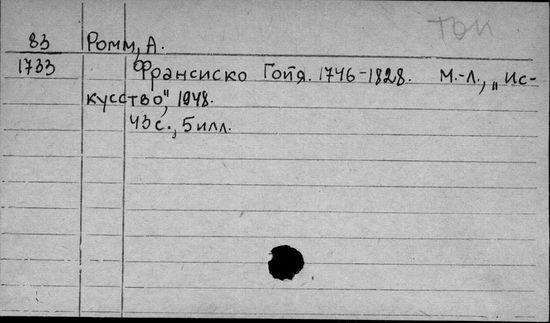 83 Ромм, А.
1733 Франсиско Гойя. 1746-1828. М.-Л., „Ис-
кусство", 1948.
43 с., 5 илл.